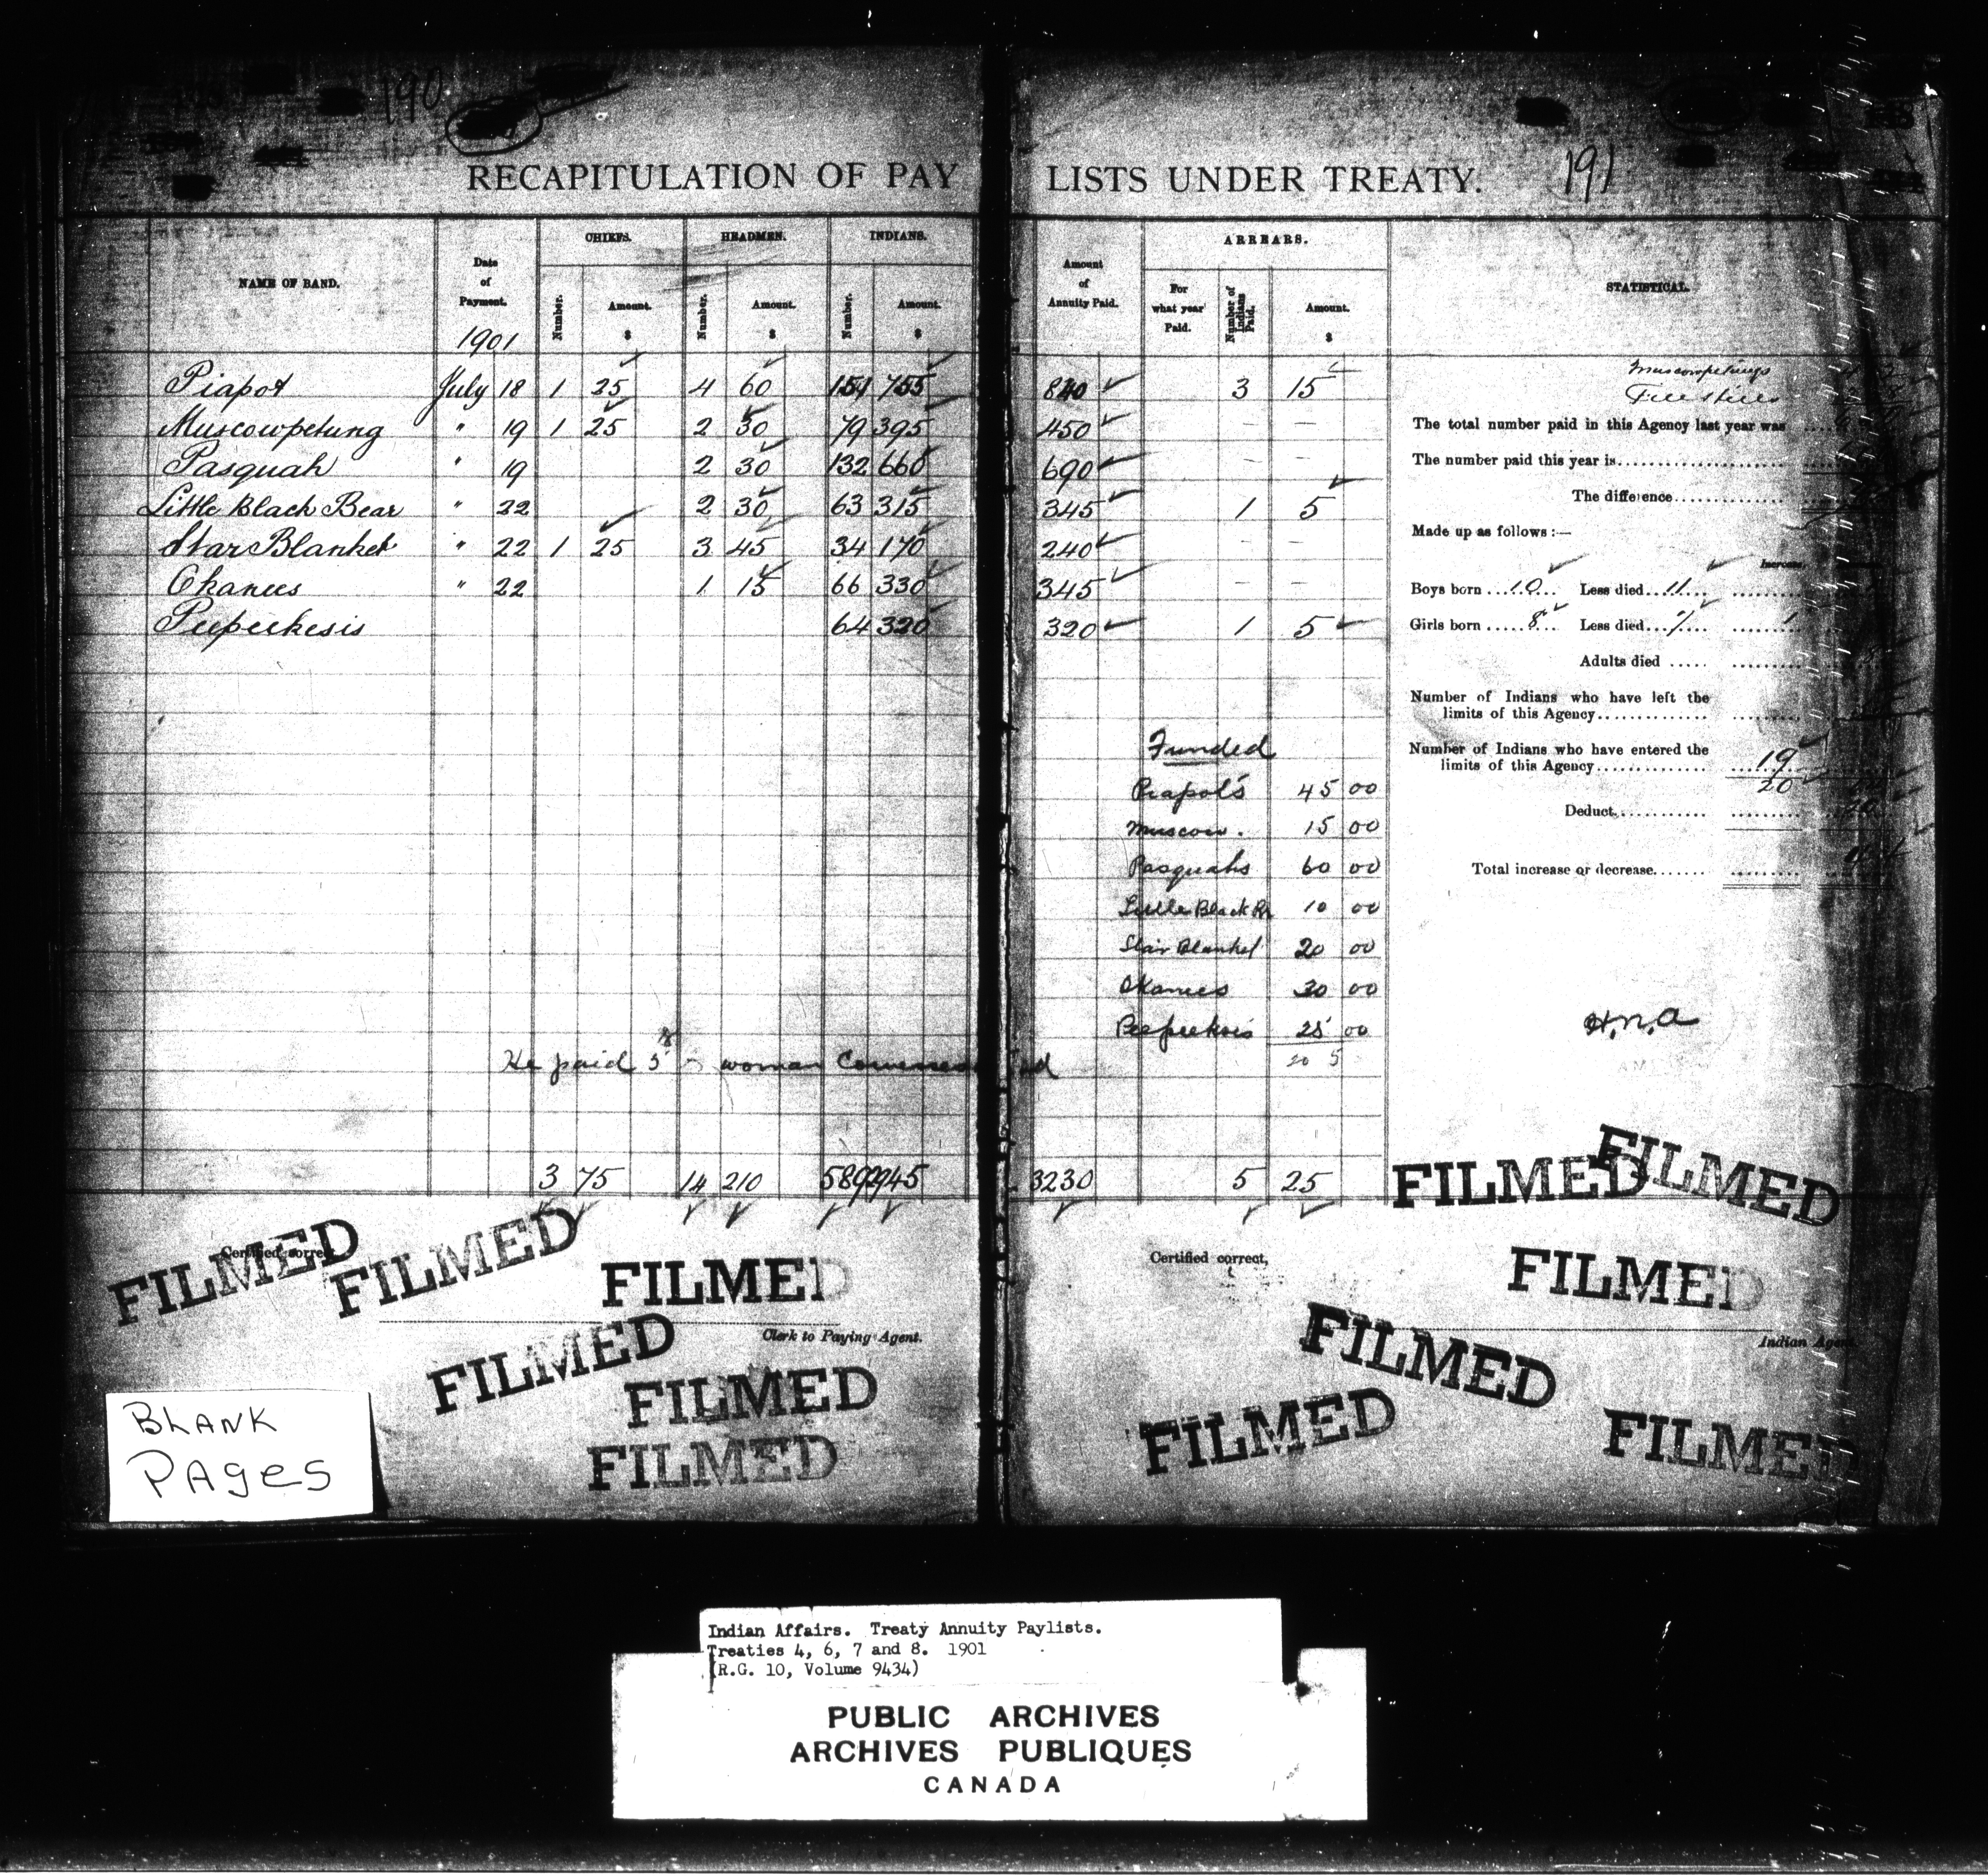 190
191
RECAPITULATION OF PAY LISTS UNDER TREATY.
NAME OF BAND. Date of Payment. CHIEFS. HEADMEN. INDIANS. Amount of Annuity Paid. ARREARS. STATISTICAL.
Number. Amount. $ Number. Amount. $ Number. Amount. $ For what year Paid. Number of Indians Paid. Amount. $
1901
Piapot July 18 1 25 4 60 151 755 840 3 15
Muscowpetung " 19 1 25 2 30 79 395 450 - -
Pasquah " 19 2 30 132 660 690 - -
Little Black Bear " 22 2 30 63 315 345 1 5
Star Blanket " 22 1 25 3 45 34 170 240 - -
Okanees " 22 1 15 66 330 345 - -
Peepeekesis 64 320 320 1 5
Muscowpetungs
File Hills
The total number paid in this Agency last year was
The number paid this year is
The difference
Made up as follows :—
Increase.
Boys born 10 Less died 11
Girls born 8 Less died 7 1
Adults died
Number of Indians who have left the
limits of this Agency
Number of Indians who have entered the
limits of this Agency 19
20
Deduct
Total increase or decrease
Funded
Piapots 45 00
Muscow. 15 00
Pasquahs 60 00
Little Black Br 10 00
Star Blanket 20 00
Okanees 30 00
Peepeekesis 25 00
20 5
H.n.a
He paid 5 woman
3 75 14 210 589 2945 3230 5 25
FILMED
FILMED
Certified correct,
FILMED
FILMED
FILMED
Clerk to Paying Agent.
FILMED
FILMED
FILMED
Certified correct,
FILMED
FILMED
Indian Agent
FILMED
FILMED
BLANK
PAges
Indian Affairs. Treaty Annuity Paylists.
Treaties 4, 6, 7 and 8. 1901
(R.G. 10, Volume 9434)
PUBLIC ARCHIVES
ARCHIVES PUBLIQUES
CANADA